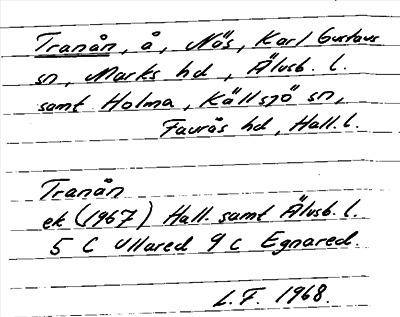 Tranån, å, Näs, Karl Gustavs
sn, Marks hd, Älvsb. l.
samt Holma, Källsjö sn,
Faurås hd, Hall. l.
Tranån
ek (1967) Hall. samt Älvsb. l.
5 C Ullared 9 c Egnared.
L. F. 1968.